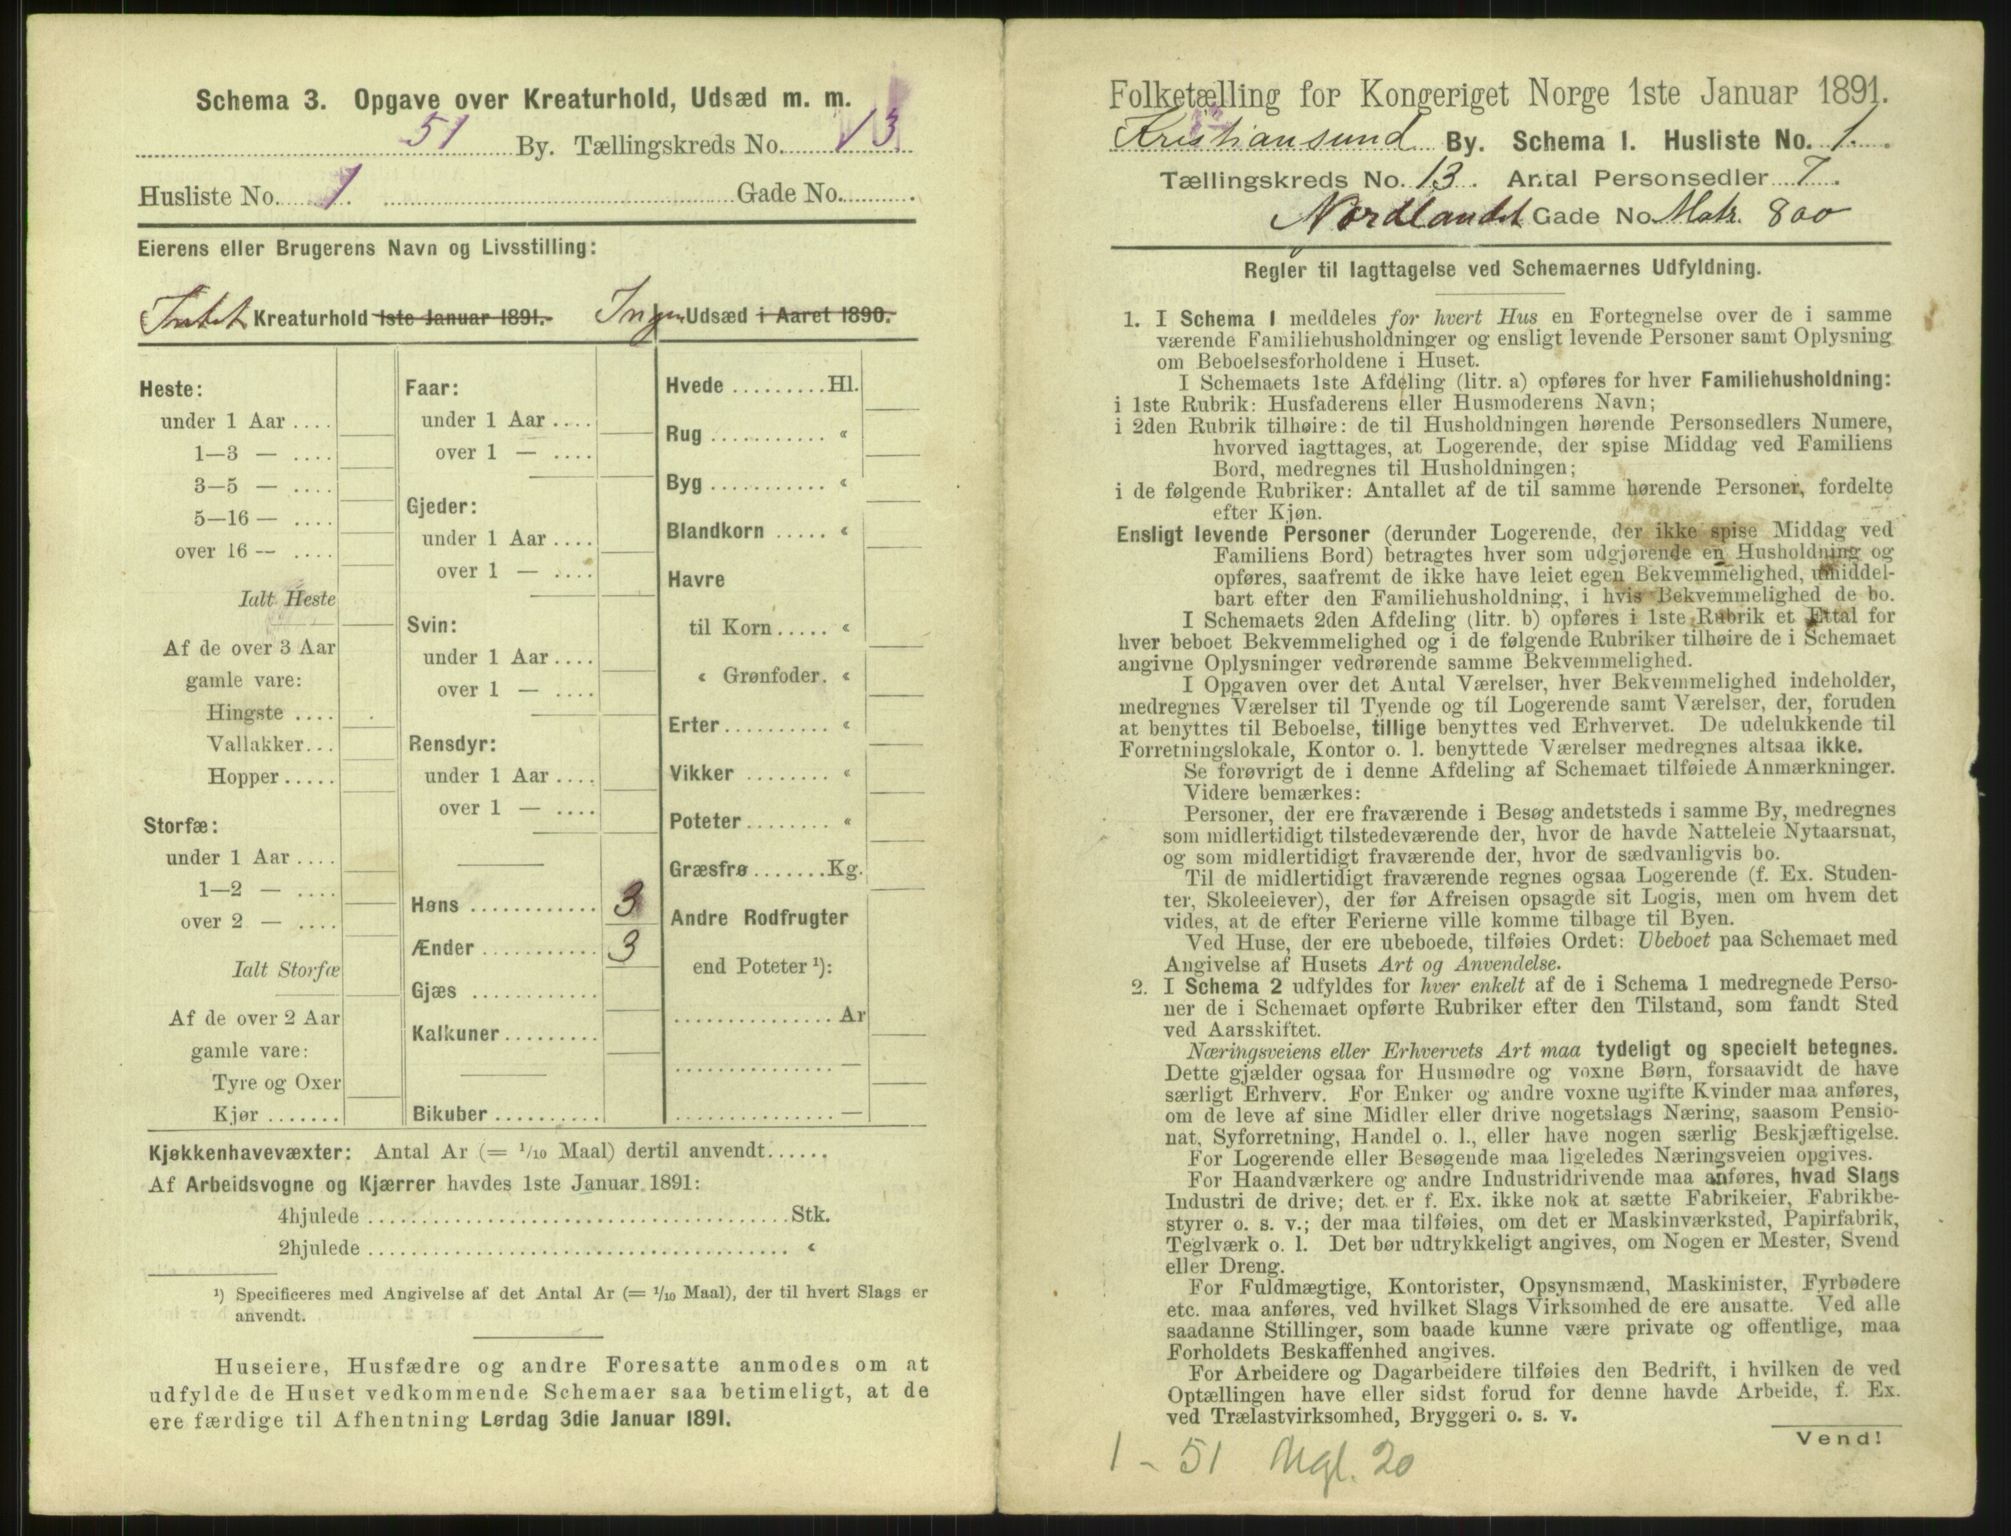 Schema 3. Opgave over Kreaturhold, Udsæd m. m.
51 By. Tællingskreds No. 13
Husliste No. 1. Gade No.
Eierens eller Brugerens Navn og Livsstilling:
Intet Kreaturhold 1ste Januar 1891. Ingen Udsæd i Aaret 1890.
Heste:
under 1 Aar ....
1—3 — ....
3—5 — ....
5—16 — ....
over 16 — ....
Ialt Heste
Af de over 3 Aar
gamle vare:
Hingste ....
Vallakker...
Hopper.....
Storfæ:
under 1 Aar ....
1—2 — ....
over 2 — ....
Ialt Storfæ
Af de over 2 Aar
gamle vare:
Tyre og Oxer
Kjør .......
Faar:
under 1 Aar ....
over 1 — ....
Gjeder:
under 1 Aar ....
over 1 — ....
Svin:
under 1 Aar ....
over 1 — ....
Rensdyr:
under 1 Aar ....
over 1 — ....
Høns ............ 3
Ænder ........... 3
Gjæs ............
Kalkuner.........
Bikuber ..........
Hvede .........Hl.
Rug ........... «
Byg ........... «
Blandkorn ..... «
Havre
til Korn ..... «
« Grønfoder. «
Erter .......... «
Vikker ........ «
Poteter........ «
Græsfrø .......Kg.
Andre Rodfrugter
end Poteter ¹):
............... Ar
............... —
............... —
Kjøkkenhavevæxter: Antal Ar (= 1/10 Maal) dertil anvendt......
Af Arbeidsvogne og Kjærrer havdes 1ste Januar 1891:
4hjulede ........................................Stk.
2hjulede ........................................ «
¹) Specificeres med Angivelse af det Antal Ar (= 1/10 Maal), der til hvert Slags er
anvendt.
Huseiere, Husfædre og andre Foresatte anmodes om at
udfylde de Huset vedkommende Schemaer saa betimeligt, at de
ere færdige til Afhentning Lørdag 3die Januar 1891.
Folketælling for Kongeriget Norge 1ste Januar 1891.
Kristiansund By. Schema I. Husliste No. 1.
Tællingskreds No. 13. Antal Personsedler 7.
Nordlandet Gade No. Matr. 800
Regler til Iagttagelse ved Schemaernes Udfyldning.
1. I Schema 1 meddeles for hvert Hus en Fortegnelse over de i samme
værende Familiehusholdninger og ensligt levende Personer samt Oplysning
om Beboelsesforholdene i Huset.
I Schemaets 1ste Afdeling (litr. a) opføres for hver Familiehusholdning:
i 1ste Rubrik: Husfaderens eller Husmoderens Navn;
i 2den Rubrik tilhøire: de til Husholdningen hørende Personsedlers Numere,
hvorved iagttages, at Logerende, der spise Middag ved Familiens
Bord, medregnes til Husholdningen;
i de følgende Rubriker: Antallet af de til samme hørende Personer, fordelte
efter Kjøn.
Ensligt levende Personer (derunder Logerende, der ikke spise Middag ved
Familiens Bord) betragtes hver som udgjørende en Husholdning og
opføres, saafremt de ikke have leiet egen Bekvemmelighed, umiddel-
bart efter den Familiehusholdning, i hvis Bekvemmelighed de bo.
I Schemaets 2den Afdeling (litr. b) opføres i 1ste Rubrik et Ettal for
hver beboet Bekvemmelighed og i de følgende Rubriker tilhøire de i Schemaet
angivne Oplysninger vedrørende samme Bekvemmelighed.
I Opgaven over det Antal Værelser, hver Bekvemmelighed indeholder,
medregnes Værelser til Tyende og til Logerende samt Værelser, der, foruden
at benyttes til Beboelse, tillige benyttes ved Erhvervet. De udelukkende til
Forretningslokale, Kontor o. l. benyttede Værelser medregnes altsaa ikke.
Se forøvrigt de i denne Afdeling af Schemaet tilføiede Anmærkninger.
Videre bemærkes:
Personer, der ere fraværende i Besøg andetsteds i samme By, medregnes
som midlertidigt tilstedeværende der, hvor de havde Natteleie Nytaarsnat,
og som midlertidigt fraværende der, hvor de sædvanligvis bo.
Til de midlertidigt fraværende regnes ogsaa Logerende (f. Ex. Studen-
ter, Skoleelever), der før Afreisen opsagde sit Logis, men om hvem det
vides, at de efter Ferierne ville komme tilbage til Byen.
Ved Huse, der ere ubeboede, tilføies Ordet: Ubeboet paa Schemaet med
Angivelse af Husets Art og Anvendelse.
2. I Schema 2 udfyldes for hver enkelt af de i Schema 1 medregnede Perso-
ner de i Schemaet opførte Rubriker efter den Tilstand, som fandt Sted
ved Aarsskiftet.
Næringsveiens eller Erhvervets Art maa tydeligt og specielt betegnes.
Dette gjælder ogsaa for Husmødre og voxne Børn, forsaavidt de have
særligt Erhverv. For Enker og andre voxne ugifte Kvinder maa anføres,
om de leve af sine Midler eller drive nogetslags Næring, saasom Pensio-
nat, Syforretning, Handel o. l., eller have nogen særlig Beskjæftigelse.
For Logerende eller Besøgende maa ligeledes Næringsveien opgives.
For Haandværkere og andre Industridrivende maa anføres, hvad Slags
Industri de drive; det er f. Ex. ikke nok at sætte Fabrikeier, Fabrikbe-
styrer o. s. v.; der maa tilføies, om det er Maskinværksted, Papirfabrik,
Teglværk o. l. Det bør udtrykkeligt angives, om Nogen er Mester, Svend
eller Dreng.
For Fuldmægtige, Kontorister, Opsynsmænd, Maskinister, Fyrbødere
etc. maa anføres, ved hvilket Slags Virksomhed de ere ansatte. Ved alle
saadanne Stillinger, som baade kunne være private og offentlige, maa
Forholdets Beskaffenhed angives.
For Arbeidere og Dagarbeidere tilføies den Bedrift, i hvilken de ved
Optællingen have eller sidst forud for denne havde Arbeide, f. Ex.
ved Trælastvirksomhed, Bryggeri o. s. v.
Vend!
1 - 51 Mgl. 20